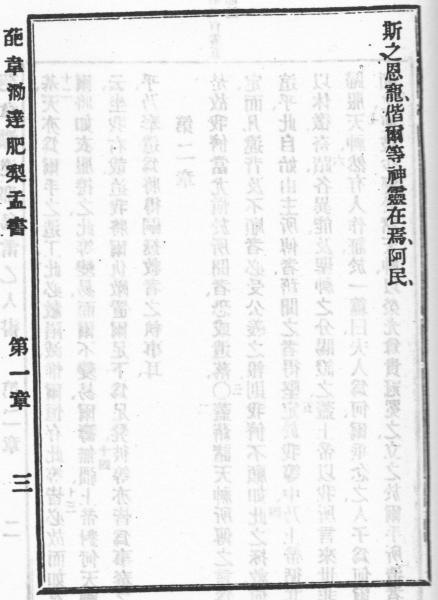 斯之恩寵、偕爾等神靈在焉、阿民、
葩韋泐達肥梨孟書 第一章 三